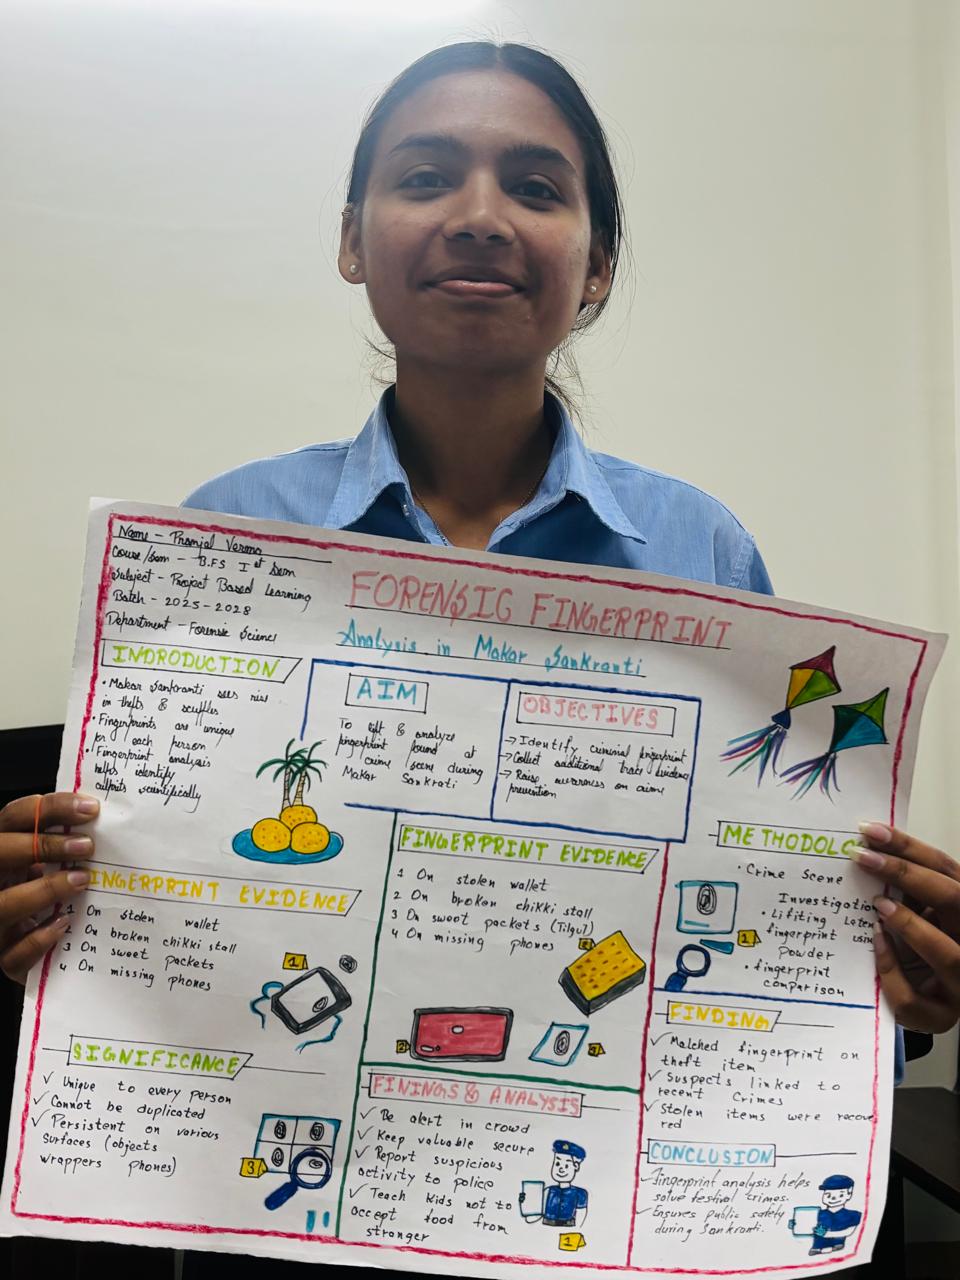 Name - Pranjal Verma
Course/Sem - B.FS Ist Sem
Subject - Project Based Learning
Batch - 2025-2028
Department - Forensic Science
FORENSIC FINGERPRINT
Analysis in Makar Sankranti
INDRODUCTION
• Makar Sankranti sees rise
in thefts & scuffles
• Fingerprints are unique
for each person
• Fingerprint analysis
helps identify
culprits scientifically
AIM
To lift & analyze
fingerprint found at
crime scene during
Makar Sankrati
OBJECTIVES
→ Identify criminal fingerprint
→ Collect additional trace evidence
→ Raise awareness on crime
prevention
INGERPRINT EVIDENCE
1 On stolen wallet
2 On broken chikki stall
3 On sweet packets
4 On missing phones
1
FINGERPRINT EVIDENCE
1 On stolen wallet
2 On broken chikki stall
3 On sweet packets (Tilgul)
4 On missing phones
2
METHODOLO
• Crime Scene
Investigation
• Lifiting Laten
fingerprint usin
powder
• fingerprint
comparison
1
SIGNIFICANCE
✓ Unique to every person
✓ Cannot be duplicated
✓ Persistent on various
surfaces (objects
wrappers phones)
3
FININGS & ANALYSIS
✓ Be alert in crowd
✓ Keep valuable secure
✓ Report suspicious
activity to police
✓ Teach kids not to
accept food from
stranger
1
FINDING
✓ Matched fingerprint on
theft item
✓ Suspects linked to
recent Crimes
✓ Stolen items were recove
red
CONCLUSION
✓ fingerprint analysis helps
solve festival crimes.
✓ Ensures public safety
during Sankranti.